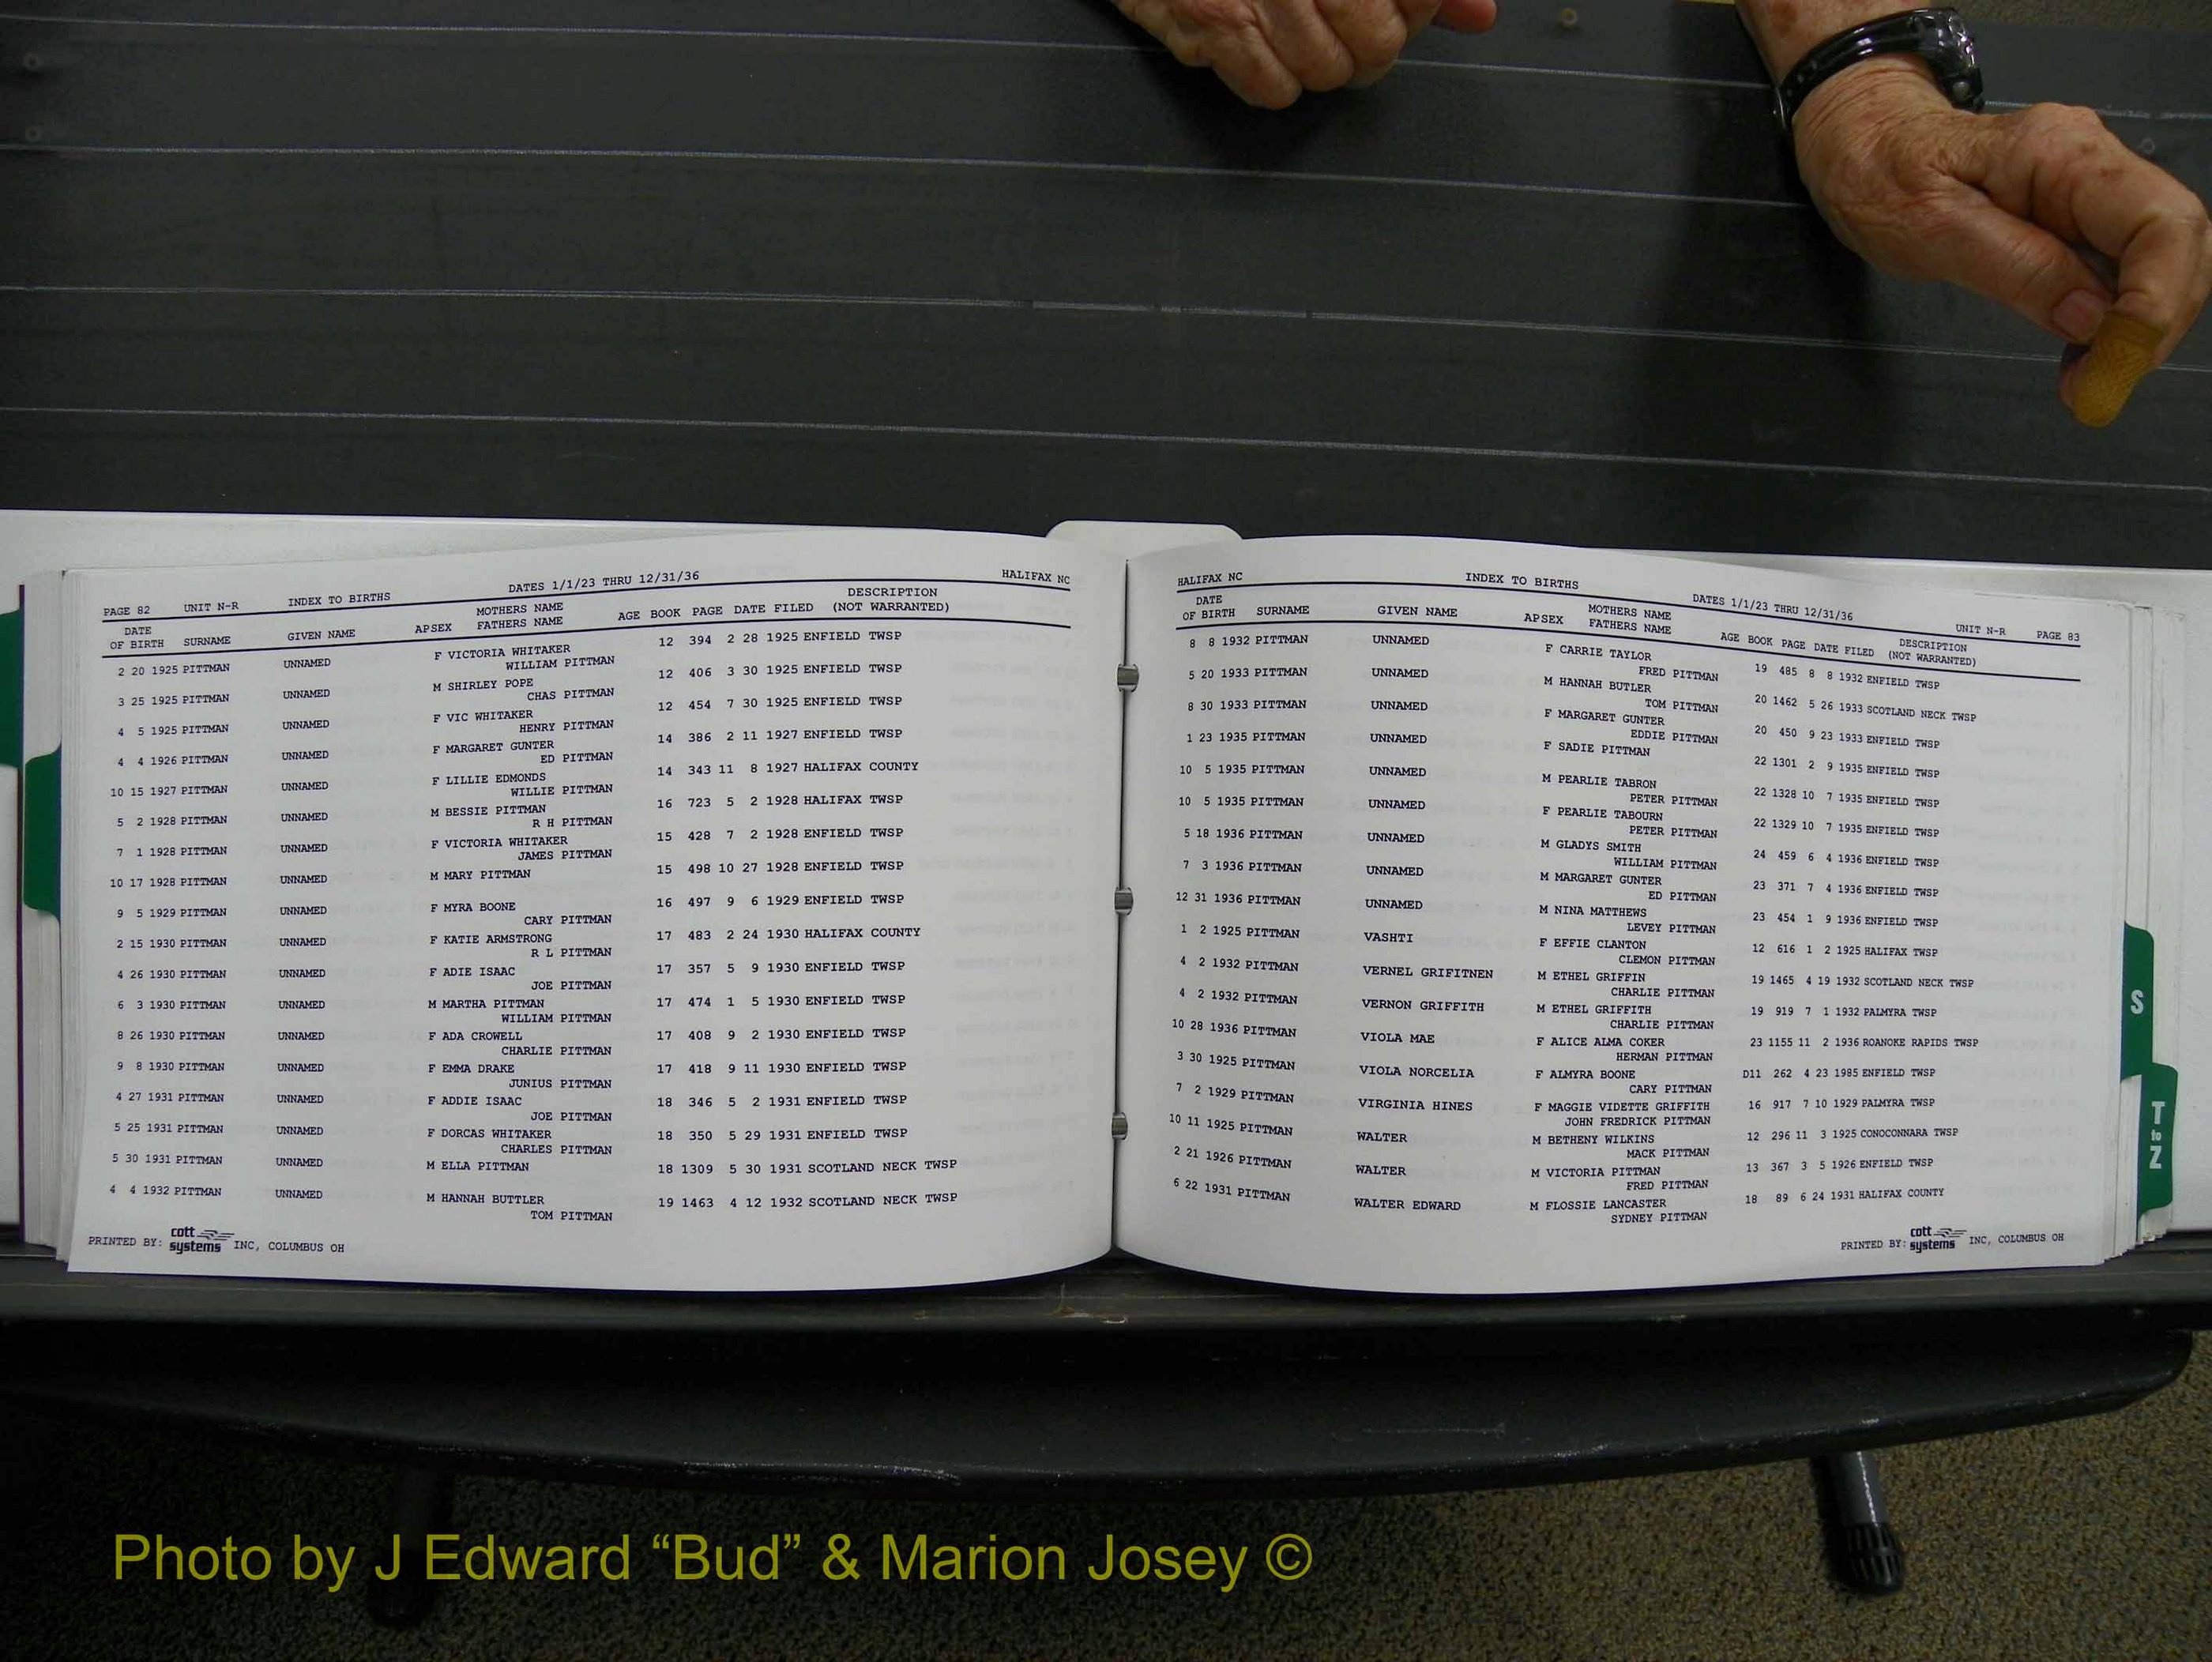 PAGE 82 UNIT N-R INDEX TO BIRTHS DATES 1/1/23 THRU 12/31/36 HALIFAX NC
DATE OF BIRTH SURNAME GIVEN NAME APSEX MOTHERS NAME FATHERS NAME AGE BOOK PAGE DATE FILED DESCRIPTION (NOT WARRANTED)
2 20 1925 PITTMAN UNNAMED F VICTORIA WHITAKER 12 394 2 28 1925 ENFIELD TWSP
WILLIAM PITTMAN
3 25 1925 PITTMAN UNNAMED M SHIRLEY POPE 12 406 3 30 1925 ENFIELD TWSP
CHAS PITTMAN
4 5 1925 PITTMAN UNNAMED F VIC WHITAKER 12 454 7 30 1925 ENFIELD TWSP
HENRY PITTMAN
4 4 1926 PITTMAN UNNAMED F MARGARET GUNTER 14 386 2 11 1927 ENFIELD TWSP
ED PITTMAN
10 15 1927 PITTMAN UNNAMED F LILLIE EDMONDS 14 343 11 8 1927 HALIFAX COUNTY
WILLIE PITTMAN
5 2 1928 PITTMAN UNNAMED M BESSIE PITTMAN 16 723 5 2 1928 HALIFAX TWSP
R H PITTMAN
7 1 1928 PITTMAN UNNAMED F VICTORIA WHITAKER 15 428 7 2 1928 ENFIELD TWSP
JAMES PITTMAN
10 17 1928 PITTMAN UNNAMED M MARY PITTMAN 15 498 10 27 1928 ENFIELD TWSP
9 5 1929 PITTMAN UNNAMED F MYRA BOONE 16 497 9 6 1929 ENFIELD TWSP
CARY PITTMAN
2 15 1930 PITTMAN UNNAMED F KATIE ARMSTRONG 17 483 2 24 1930 HALIFAX COUNTY
R L PITTMAN
4 26 1930 PITTMAN UNNAMED F ADIE ISAAC 17 357 5 9 1930 ENFIELD TWSP
JOE PITTMAN
6 3 1930 PITTMAN UNNAMED M MARTHA PITTMAN 17 474 1 5 1930 ENFIELD TWSP
WILLIAM PITTMAN
8 26 1930 PITTMAN UNNAMED F ADA CROWELL 17 408 9 2 1930 ENFIELD TWSP
CHARLIE PITTMAN
9 8 1930 PITTMAN UNNAMED F EMMA DRAKE 17 418 9 11 1930 ENFIELD TWSP
JUNIUS PITTMAN
4 27 1931 PITTMAN UNNAMED F ADDIE ISAAC 18 346 5 2 1931 ENFIELD TWSP
JOE PITTMAN
5 25 1931 PITTMAN UNNAMED F DORCAS WHITAKER 18 350 5 29 1931 ENFIELD TWSP
CHARLES PITTMAN
5 30 1931 PITTMAN UNNAMED M ELLA PITTMAN 18 1309 5 30 1931 SCOTLAND NECK TWSP
4 4 1932 PITTMAN UNNAMED M HANNAH BUTTLER 19 1463 4 12 1932 SCOTLAND NECK TWSP
TOM PITTMAN
PRINTED BY: cott systems INC, COLUMBUS OH
HALIFAX NC INDEX TO BIRTHS DATES 1/1/23 THRU 12/31/36 UNIT N-R PAGE 83
DATE OF BIRTH SURNAME GIVEN NAME APSEX MOTHERS NAME FATHERS NAME AGE BOOK PAGE DATE FILED DESCRIPTION (NOT WARRANTED)
8 8 1932 PITTMAN UNNAMED F CARRIE TAYLOR 19 485 8 8 1932 ENFIELD TWSP
FRED PITTMAN
5 20 1933 PITTMAN UNNAMED M HANNAH BUTLER 20 1462 5 26 1933 SCOTLAND NECK TWSP
TOM PITTMAN
8 30 1933 PITTMAN UNNAMED F MARGARET GUNTER 20 450 9 23 1933 ENFIELD TWSP
EDDIE PITTMAN
1 23 1935 PITTMAN UNNAMED F SADIE PITTMAN 22 1301 2 9 1935 ENFIELD TWSP
10 5 1935 PITTMAN UNNAMED M PEARLIE TABRON 22 1328 10 7 1935 ENFIELD TWSP
PETER PITTMAN
10 5 1935 PITTMAN UNNAMED F PEARLIE TABOURN 22 1329 10 7 1935 ENFIELD TWSP
PETER PITTMAN
5 18 1936 PITTMAN UNNAMED M GLADYS SMITH 24 459 6 4 1936 ENFIELD TWSP
WILLIAM PITTMAN
7 3 1936 PITTMAN UNNAMED M MARGARET GUNTER 23 371 7 4 1936 ENFIELD TWSP
ED PITTMAN
12 31 1936 PITTMAN UNNAMED M NINA MATTHEWS 23 454 1 9 1936 ENFIELD TWSP
LEVEY PITTMAN
1 2 1925 PITTMAN VASHTI F EFFIE CLANTON 12 616 1 2 1925 HALIFAX TWSP
CLEMON PITTMAN
4 2 1932 PITTMAN VERNEL GRIFITNEN M ETHEL GRIFFIN 19 1465 4 19 1932 SCOTLAND NECK TWSP
CHARLIE PITTMAN
4 2 1932 PITTMAN VERNON GRIFFITH M ETHEL GRIFFITH 19 919 7 1 1932 PALMYRA TWSP
CHARLIE PITTMAN
10 28 1936 PITTMAN VIOLA MAE F ALICE ALMA COKER 23 1155 11 2 1936 ROANOKE RAPIDS TWSP
HERMAN PITTMAN
3 30 1925 PITTMAN VIOLA NORCELIA F ALMYRA BOONE D11 262 4 23 1985 ENFIELD TWSP
CARY PITTMAN
7 2 1929 PITTMAN VIRGINIA HINES F MAGGIE VIDETTE GRIFFITH 16 917 7 10 1929 PALMYRA TWSP
JOHN FREDRICK PITTMAN
10 11 1925 PITTMAN WALTER M BETHENY WILKINS 12 296 11 3 1925 CONOCONNARA TWSP
MACK PITTMAN
2 21 1926 PITTMAN WALTER M VICTORIA PITTMAN 13 367 3 5 1926 ENFIELD TWSP
FRED PITTMAN
6 22 1931 PITTMAN WALTER EDWARD M FLOSSIE LANCASTER 18 89 6 24 1931 HALIFAX COUNTY
SYDNEY PITTMAN
PRINTED BY: cott systems INC, COLUMBUS OH
S
T
to
Z
Photo by J Edward “Bud” & Marion Josey ©